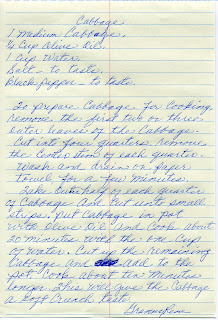 Cabbage
1 Medium Cabbage.
1/4 Cup Olive Oil.
1 Cup Water.
Salt - to taste.
Black Pepper - to taste.
To prepare Cabbage for Cooking
remove the first two or three
outer leaves of the Cabbage.
Cut into four quarters. remove
the center stem of each quarter.
Wash and drain on paper
towel for a few minutes.
Take one half of each quarter
of Cabbage and cut into small
strips. Put Cabbage in pot
with Olive Oil and Cook about
20 minutes with the one Cup
of water. Cut up the remaining
Cabbage and add to the
pot. Cook about ten minutes
longer. This will give the Cabbage
a soft Crunch taste.